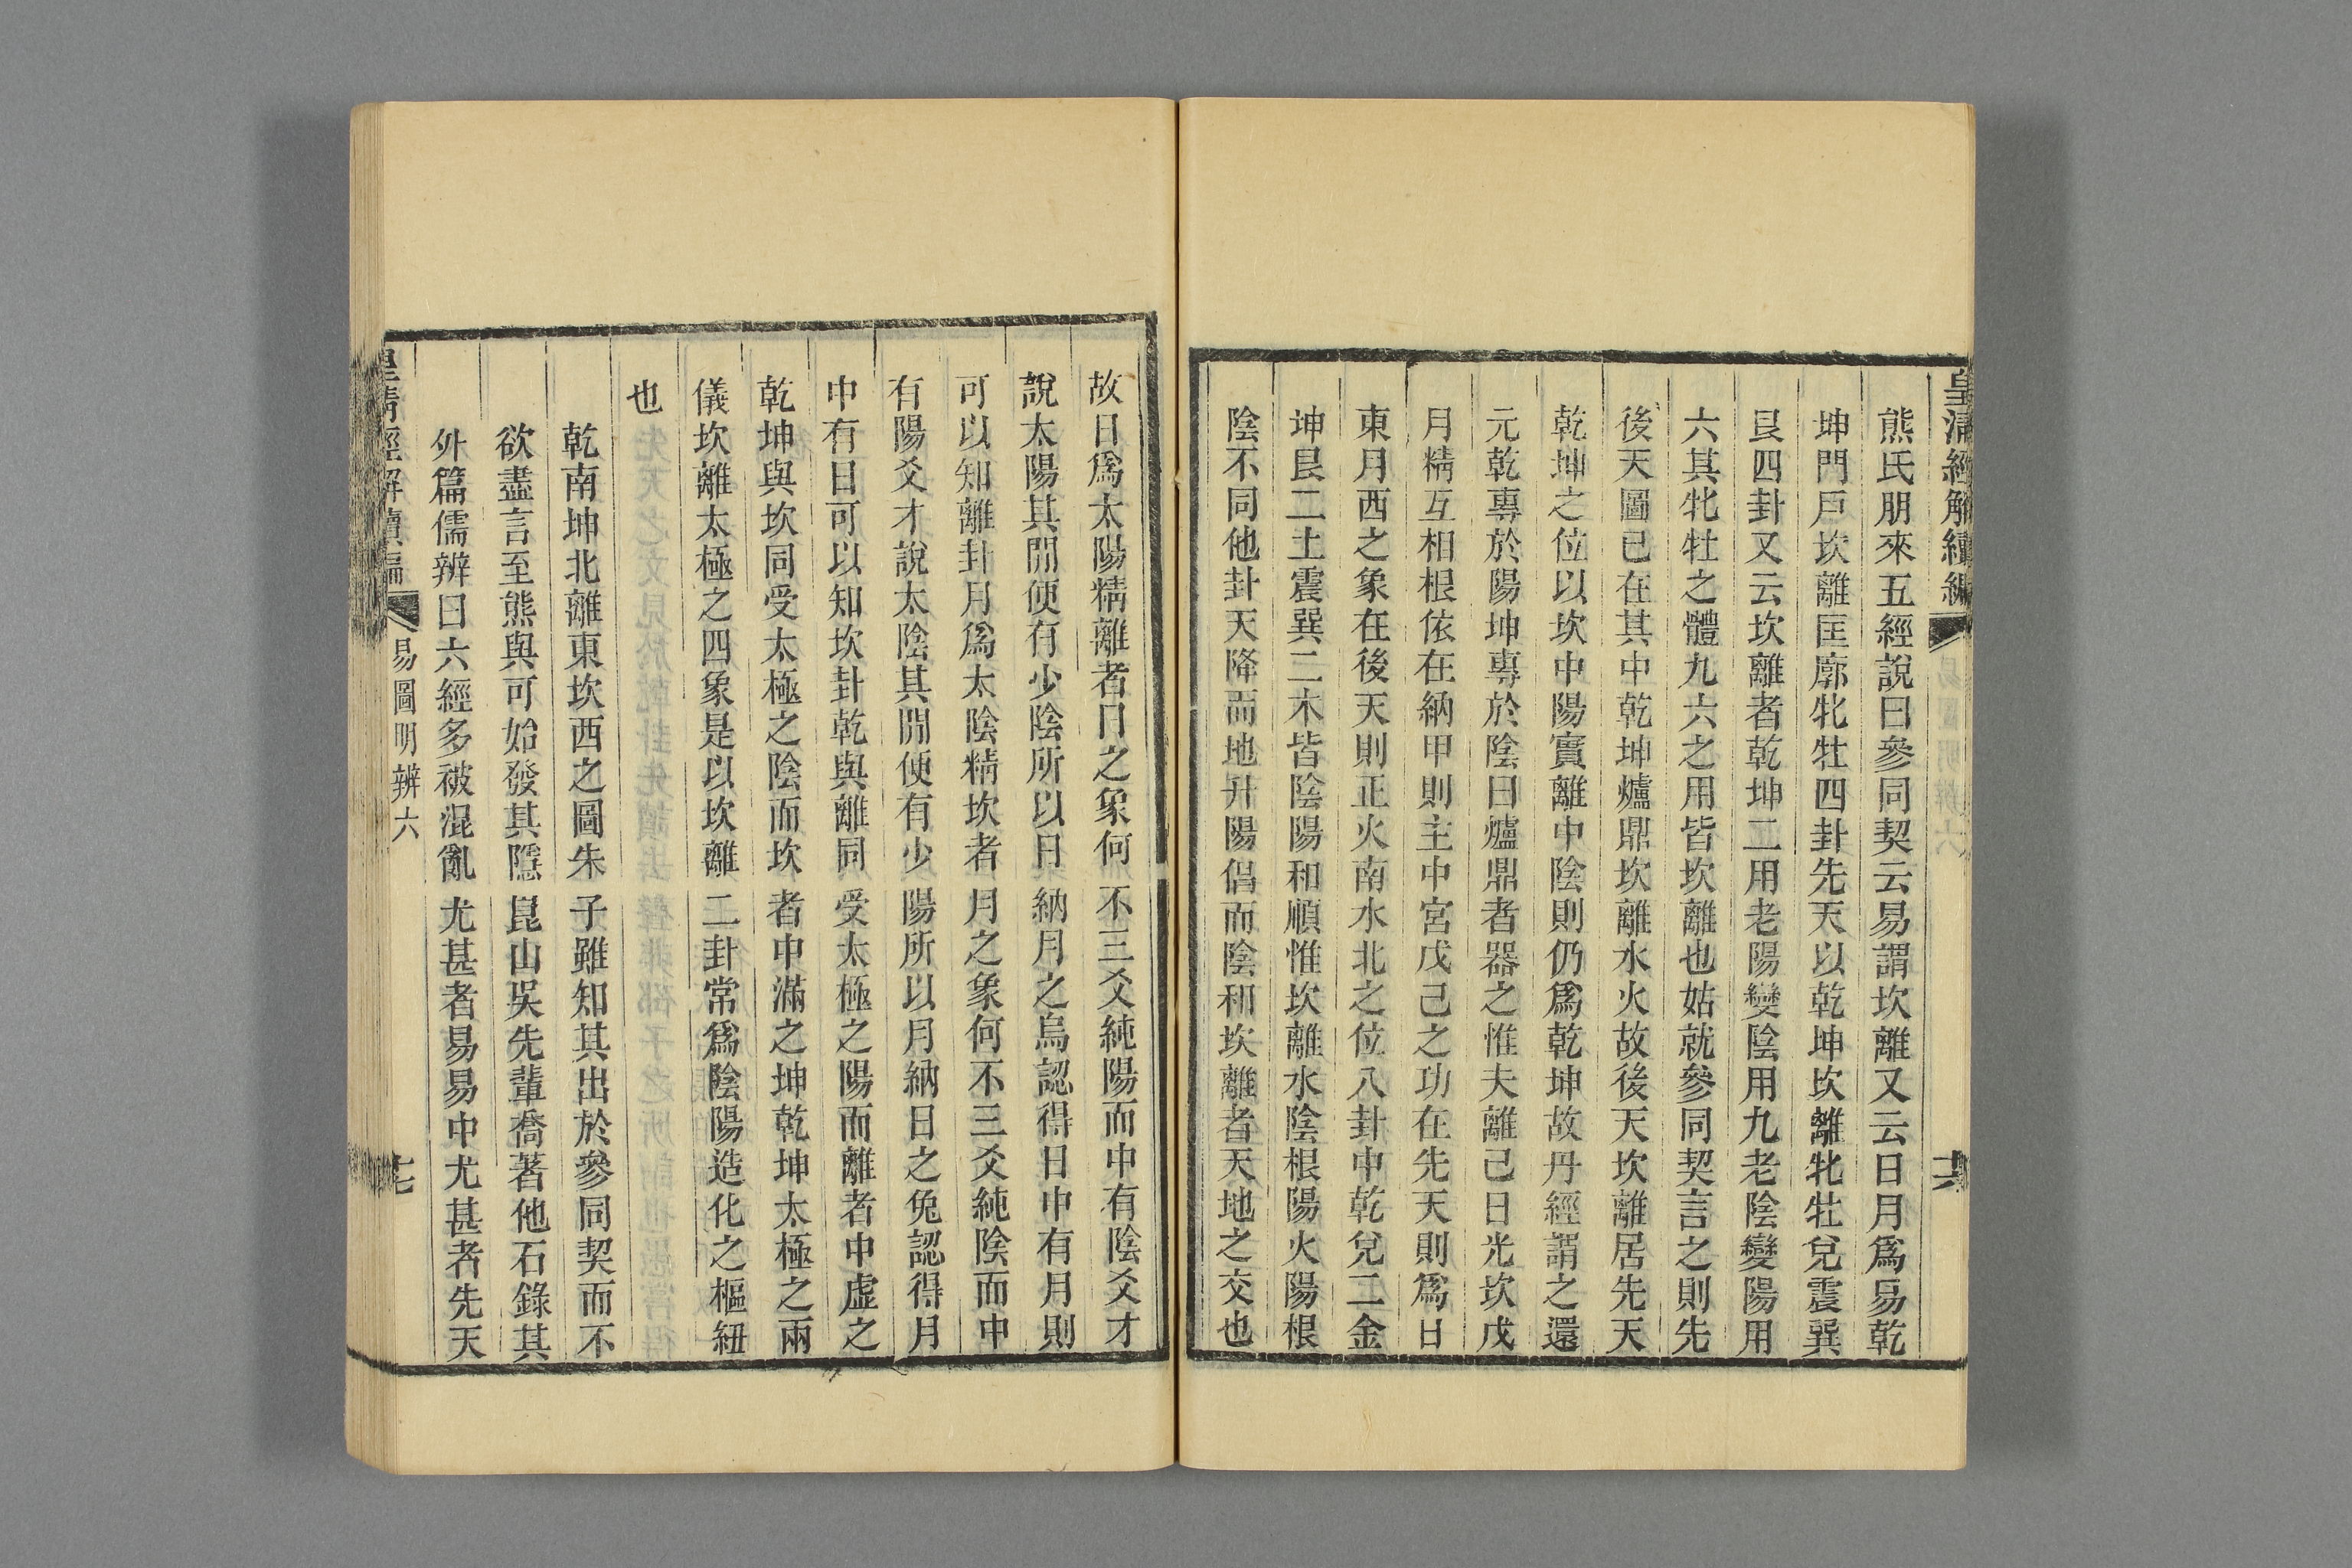 皇清經解續編
十六
熊氏朋來五經說曰參同契云易謂坎離又云日月爲易乾
坤門戶坎離匡廓牝牡四卦先天以乾坤坎離牝牡兌震巽
艮四卦又云坎離者乾坤二用老陽變陰用九老陰變陽用
六其牝牡之體九六之用皆坎離也姑就參同契言之則先
後天圖已在其中乾坤爐鼎坎離水火故後天坎離居先天
乾坤之位以坎中陽實離中陰則仍爲乾坤故丹經謂之還
元乾專於陽坤專於陰曰爐鼎者器之惟夫離己日光坎戊
月精互相根依在納甲則主中宮戊己之功在先天則爲日
東月西之象在後天則正火南水北之位八卦中乾兌二金
坤艮二土震巽二木皆陰陽和順惟坎離水陰根陽火陽根
陰不同他卦天降而地升陽倡而陰和坎離者天地之交也
故日爲太陽精離者日之象何不三爻純陽而中有陰爻才
說太陽其閒便有少陰所以日納月之烏認得日中有月則
可以知離卦月爲太陰精坎者月之象何不三爻純陰而中
有陽爻才說太陰其閒便有少陽所以月納日之兔認得月
中有日可以知坎卦乾與離同受太極之陽而離者中虛之
乾坤與坎同受太極之陰而坎者中滿之坤乾坤太極之兩
儀坎離太極之四象是以坎離二卦常爲陰陽造化之樞紐
也
乾南坤北離東坎西之圖朱子雖知其出於參同契而不
欲盡言至熊與可始發其隱崑山吳先輩喬著他石錄其
外篇儒辨曰六經多被混亂尤甚者易易中尤甚者先天
皇清經解續編
易圖明辨六
十七